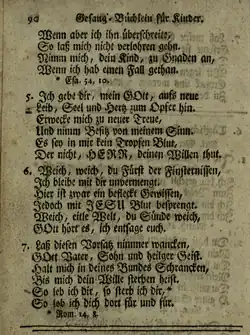 90 Gesang-Büchlein für Kinder.
Wenn aber ich ihn überschreite,
So laß mich nicht verlohren gehn.
Nimm mich, dein Kind, zu Gnaden an,
Wenn ich hab einen Fall gethan.
* Esa. 54, 10.
5. Ich gebe dir, mein GOtt, aufs neue
Leib, Seel und Hertz zum Opfer hin.
Erwecke mich zu neuer Treue,
Und nimm Besitz von meinem Sinn.
Es sey in mir kein Tropfen Blut,
Der nicht, HERR, deinen Willen thut.
6. Weich, weich, du Fürst der Finsternissen,
Ich bleibe mit dir unvermengt.
Hier ist zwar ein befleckt Gewissen,
Jedoch mit JESU Blut besprengt.
Weich, eitle Welt, du Sünde weich,
GOtt hört es, ich entsage euch.
7. Laß diesen Vorsatz nimmer wancken,
GOtt Vater, Sohn und heilger Geist.
Halt mich in deines Bundes Schrancken,
Bis mich dein Wille sterben heist.
So leb ich dir, so sterb ich dir, *
So lob ich dich dort für und für.
* Rom. 14, 8.